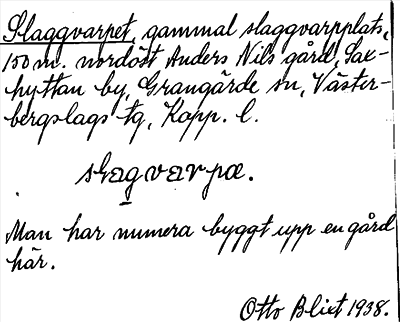 Slaggvarpet, gammal slaggvarpplats,
150 m. nordöst Anders Nils gård, Sax-
hyttan by, Grangärde sn, Väster-
bergslags tg, Kopp. l.
slagvarpæ.
Man har numera byggt upp en gård
här.
Otto Blixt 1938.